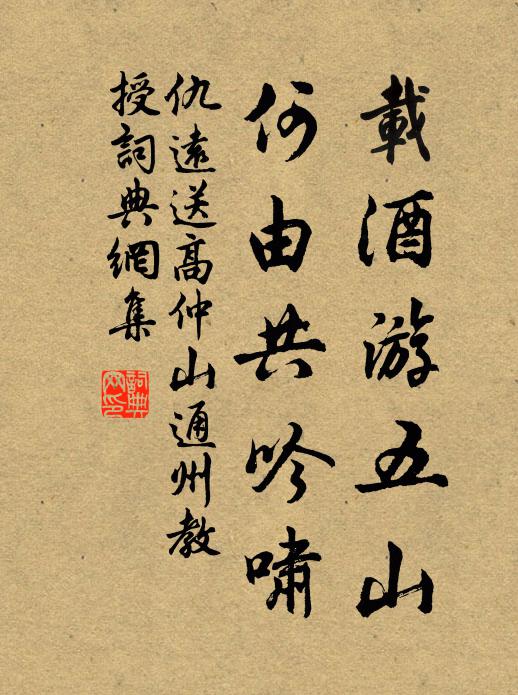 載酒游五山
何由共吟嘯
仇遠送高仲山通州教
授詞典網集
詞典网印